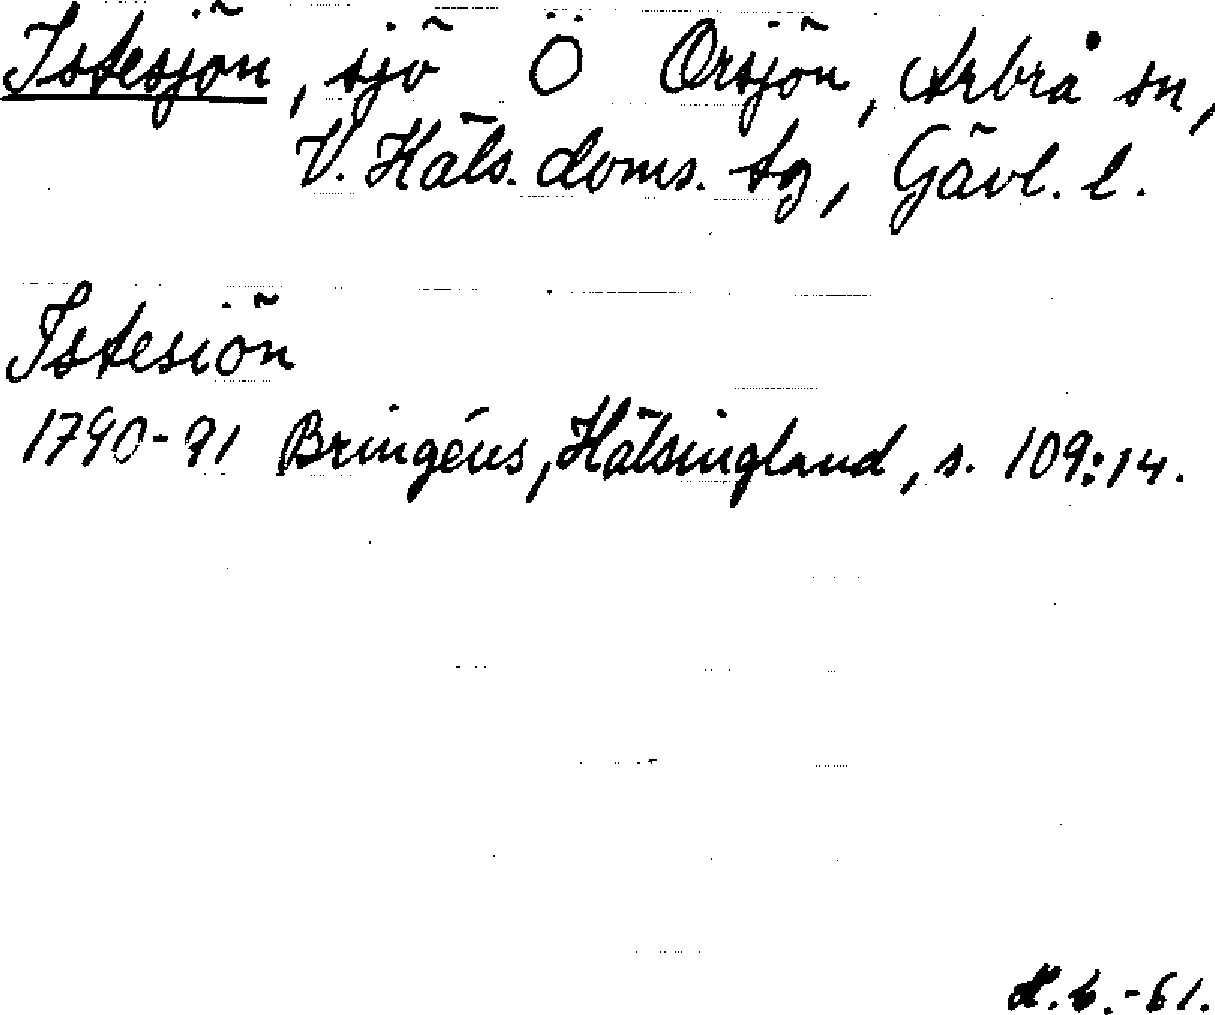 Istesjön, sjö Ö Orsjön, Arbrå sn,
V. Häls. doms. tg, Gävl. l.
Istesiön
1790-91 Bringéus, Hälsingland, s. 109:14.
H. b. -61.